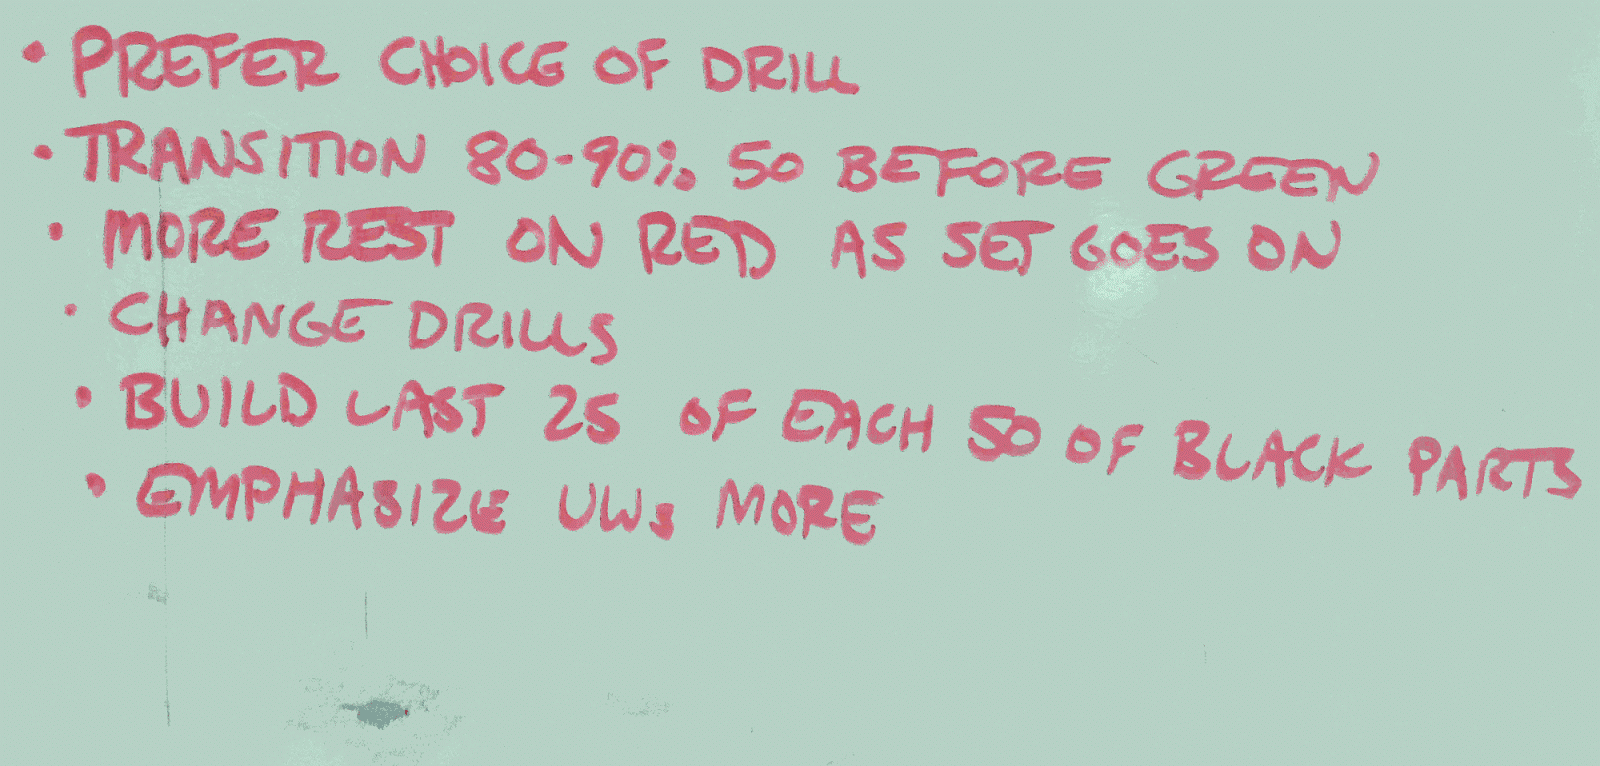 • PREFER CHOICE OF DRILL
• TRANSITION 80-90% 50 BEFORE GREEN
• MORE REST ON RED AS SET GOES ON
• CHANGE DRILLS
• BUILD LAST 25 OF EACH 50 OF BLACK PARTS
• EMPHASIZE UWs MORE